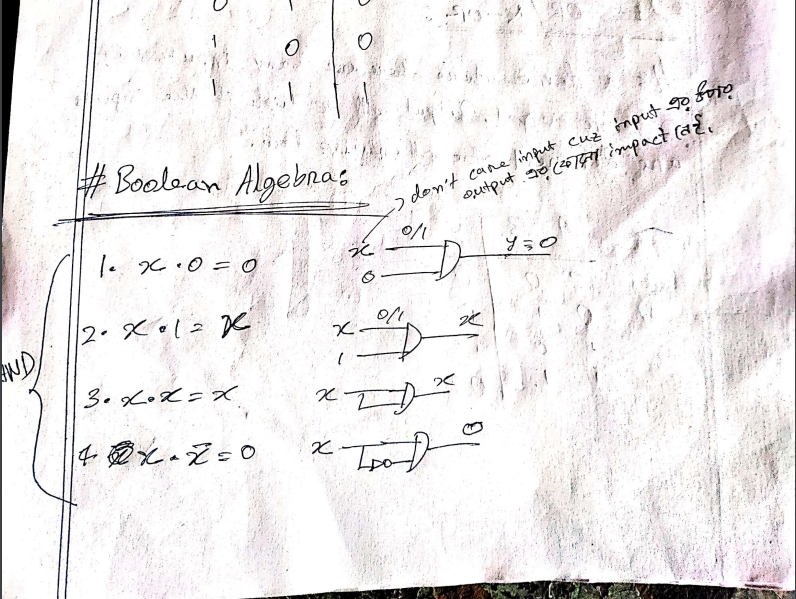 0 1 0
1 0 0
1 1 1
# Boolean Algebra:
don't care input cuz input এর উপর
output এর কোনো impact নেই.
AND
1. x · 0 = 0
x 0/1
0
y = 0
2. x · 1 = x
x 0/1
1
x
3. x · x = x
x
x
4. x · x̄ = 0
x
0